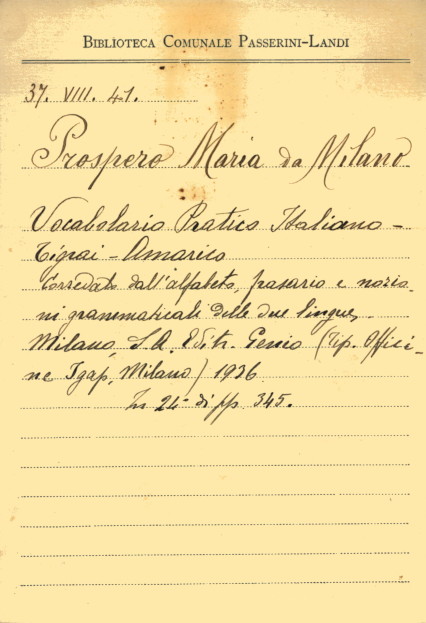 BIBLIOTECA COMUNALE PASSERINI-LANDI
37. VIII. 41.
Prospero Maria da Milano
Vocabolario Pratico Italiano -
Tigrai - Amarico
Corredato dall'alfabeto, frasario e nozio-
ni grammaticali delle due lingue.
Milano, S.A. Editr. Genio (Tip. Offici-
ne Tgap, Milano) 1936
In 24° di pp. 345.